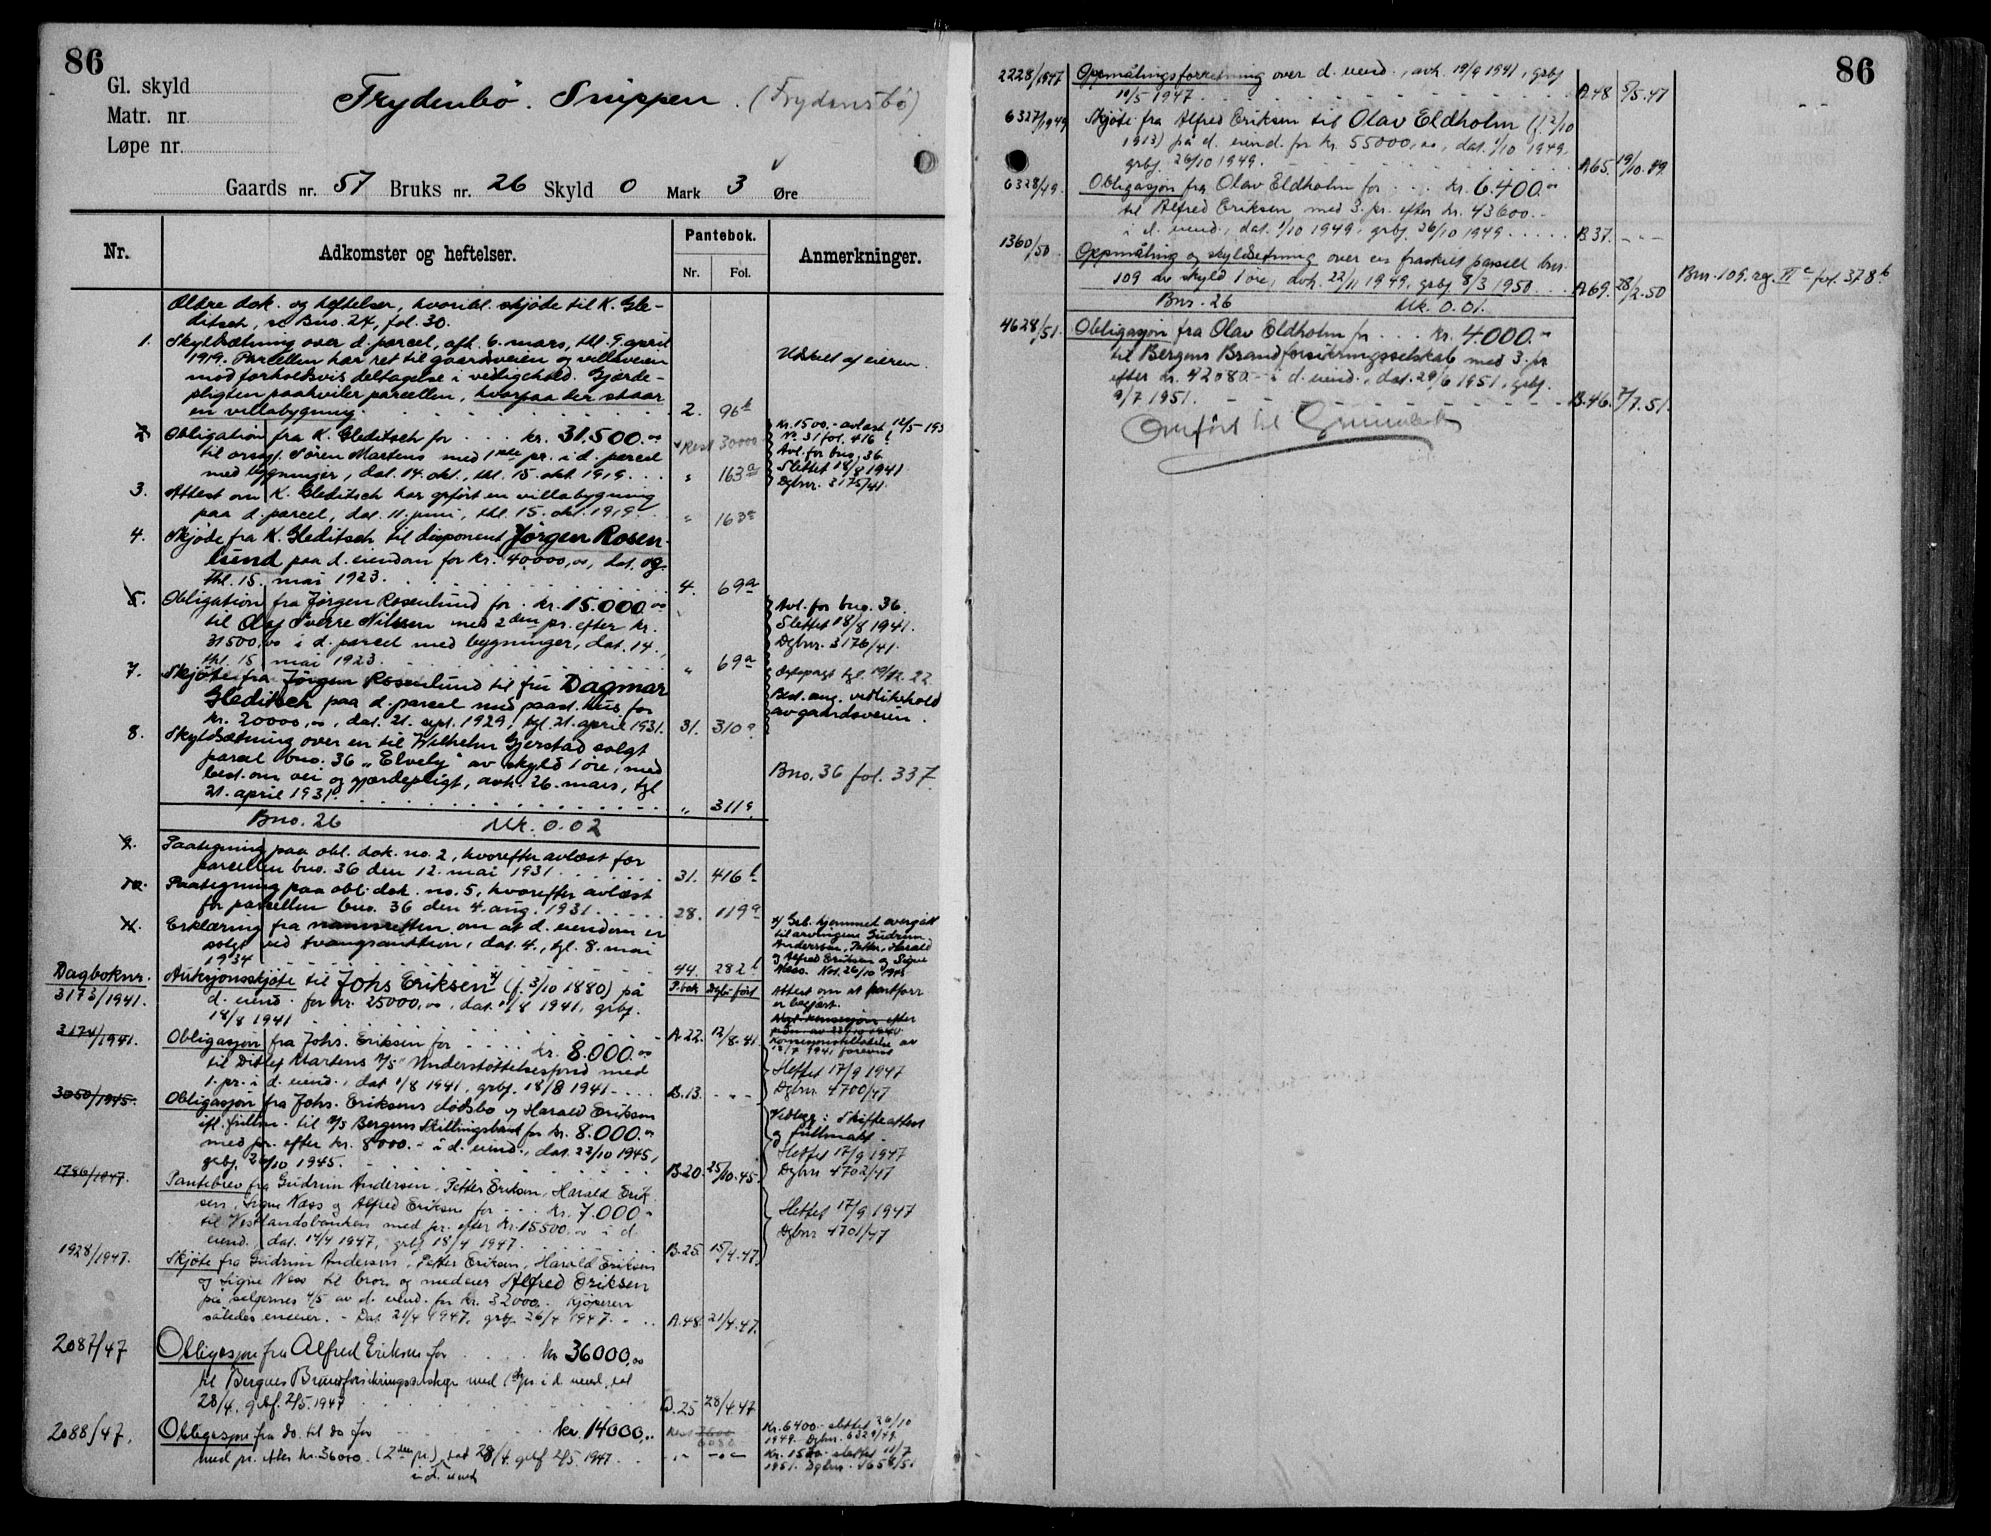 86
Gl. skyld
Matr. nr.
Løpe nr.
Frydenbö. Snippen. (Frydensbö)
Gaards nr. 57 Bruks nr. 26 Skyld 0 Mark 3 Øre
Nr.
Adkomster og heftelser.
Pantebok.
Nr. Fol.
Anmerkninger.
Ældre dok. og heftelser, hvoribl. skjøde til K. Gle-
ditsch, se Bno. 24, fol. 30.
1. Skyldsætning over d. parcel, afh. 6. mars, thl. 9. april
1919. Parcellen har ret til gaardsveien og villaveien
mod forholdsvis deltagelse i vedligehold. Gjærde-
pligten paahviler parcellen, hvorpaa der staar
en villabygning. 2. 96b
Utskilt af eieren.
2. Obligation fra K. Gleditsch for kr. 31.500.00
til Søren Martens med 1ste pr. i d. parcel
med bygninger, dat. 14. okt., thl. 15. okt. 1919. " 163a
Rest 30000
Kr. 1500.- avlæst 12/5-193
No. 31 fol. 416b
Avl. for bno. 36
Slettet 18/8 1941
Dgbnr. 3175/41.
3. Attest om K. Gleditsch har opført en villabygning
paa d. parcel, dat. 11. juni, thl. 15. okt. 1919. " 163a
4. Skjøde fra K. Gleditsch til disponent Jørgen Rosen-
lund paa d. eiendom for kr. 40000,00, dat. og
thl. 15. mai 1923. 4. 69a
5. Obligation fra Jørgen Rosenlund for kr. 15.000.00
til Olaf Sverre Nilssen med 2den pr. efter kr.
31500,00 i d. parcel med bygninger, dat. 14.,
thl. 15 mai 1923. " 69a
Avl. for bno. 36.
Slettet 18/8 1941.
Dgbnr. 3176/41.
7. Skjøte fra Jørgen Rosenlund til fru Dagmar
Gleditsch paa d. parcel med paast. hus for
kr. 20000,00, dat. 21. sept. 1929, tgl. 21. april 1931. 31. 310a
tgl. 19/12. 22.
Best. ang. vedlikehold
av gaardsveien.
8. Skyldsætning over en til Wilhelm Gjerstad solgt
parcel bno. 36 "Elvely" av skyld 1 øre, med
best. om vei og gjærdepligt, avh. 26. mars, tgl.
21. april 1931. " 311a
Bno. 36 fol. 337.
Bno. 26 Mk. 0.02
9. Paategning paa obl. dok. no. 2, hvorefter avlæst for
parcellen bno. 36 den 12. mai 1931. 31. 416b
10. Paategning paa obl. dok. no. 5, hvorefter avlæst
for parcellen bno. 36 den 4. aug. 1931. 28. 119a
11. Erklæring fra namsretten om at d. eiendom er
solgt ved tvangsauktion, dat. 4., tgl. 8. mai
1934 44. 282b
x) Grb. hjemmel overgått
til arvingene Gudrun
Andersen, Petter, Harald
og Alfred Eriksen og Signe
Næss. Not. 26/10 1945
Dagboknr. P.bok Dgb. ført
3173/1941. Auksjonsskjøte til Johs Eriksen x) (f. 3/10 1880) på
d. eiend. for kr. 25000,00, dat. 11/8 1941, grbf.
18/8 1941 A.22. 12/8.41.
Attest om at
er begjært.
Konsesjonstillatelse av
18/7 1941 forevist
3174/1941. Obligasjon fra Johs. Eriksen for kr. 8.000.00
til Ditlef Martens A/S Understøttelsesfond med
1. pr. i d. eiend., dat. 11/8 1941, grbf. 18/8 1941. B.13. - " -
Slettet 17/9 1947
Dgbnr. 4700/47
3050/1945. Obligasjon fra Johs. Eriksens dødsbo og Harald Eriksen
ifl. fullm. til A/S Bergens Skillingsbank for kr. 8.000.00
med pr. efter kr. 8000.- i d. eiend., dat. 22/10 1945,
grbf. 26/10 1945. B.20. 25/10.45.
Vedlegg: Skifteattest
og fullmakt.
Slettet 17/9 1947
Dgbnr. 4702/47
1786/1947. Pantebrev fra Gudrun Andersen, Petter Eriksen, Harald Erik-
sen, Signe Næss og Alfred Eriksen for kr. 7.000.-
til Vestlandsbanken med pr. efter kr. 15500,00 i d.
eiend. dat. 14/4 1947, grbf. 18/4 1947. B.25. 15/4.47.
Slettet 17/9 1947
Dgbnr. 4701/47
1928/1947. Skjøte fra Gudrun Andersen, Petter Eriksen, Harald Eriksen
og Signe Næss til bror og medeier Alfred Eriksen
på selgernes 4/5 av d. eiend. for kr. 32000.- Kjøperen
således eneeier. - Dat 21/4 1947, grbf. 26/4 1947. A.48. 21/4.47.
2087/47 Obligasjon fra Alfred Eriksen for kr 36000,00
til Bergens Brandforsikringsselskap med 1ste pr. i d. eiend, dat
28/4. grbf. 2/5. 1947 B.25 28/4 47
2088/47. Obligasjon fra do. til do for kr. 14000,-
med pr. etter kr. 36000. (2den pr.) dat 28/4. grbf 2/5. 1947.
i d. eiend
Rest 7600 6080
Kr. 6400.- slettet 26/10
1949. Dgbnr. 6329/49.
Kr. 1520.- slettet 11/7
1951. Dgbnr. 4658/51
86
2228/1947 Oppmålingsforretning over d. eiend., avh. 19/9 1941, grbf.
10/5 1947. A.48 5/5.47
6327/1949 Skjøte fra Alfred Eriksen til Olav Eldholm (f. 2/10
1913) på d. eiend. for kr. 55000,00, dat. 1/10 1949,
grbf. 26/10 1949. A.65. 19/10.49.
6328/49. Obligasjon fra Olav Eldholm for kr. 6.400.00
til Alfred Eriksen med 3. pr. efter kr. 43600.-
i d. eiend., dat. 1/10 1949, grbf. 26/10 1949 B.37. - " -
1360/50 Oppmåling og skyldsetning over en fraskilt parsell bnr.
109 av skyld 1 øre, avh. 22/11 1949, grbf. 8/3 1950. A.69. 28/2.50
Bnr. 109, reg. VI c fol. 378b
Bnr. 26 Mk. 0.01.
4628/51. Obligasjon fra Olav Eldholm for kr. 4.000.00
til Bergens Brandforsikringsselskab med 3. pr
efter kr. 42080.- i d. eiend., dat. 29/6 1951, grbf.
9/7 1951. B.46. 2/7.51.
Overført til Grunnbok